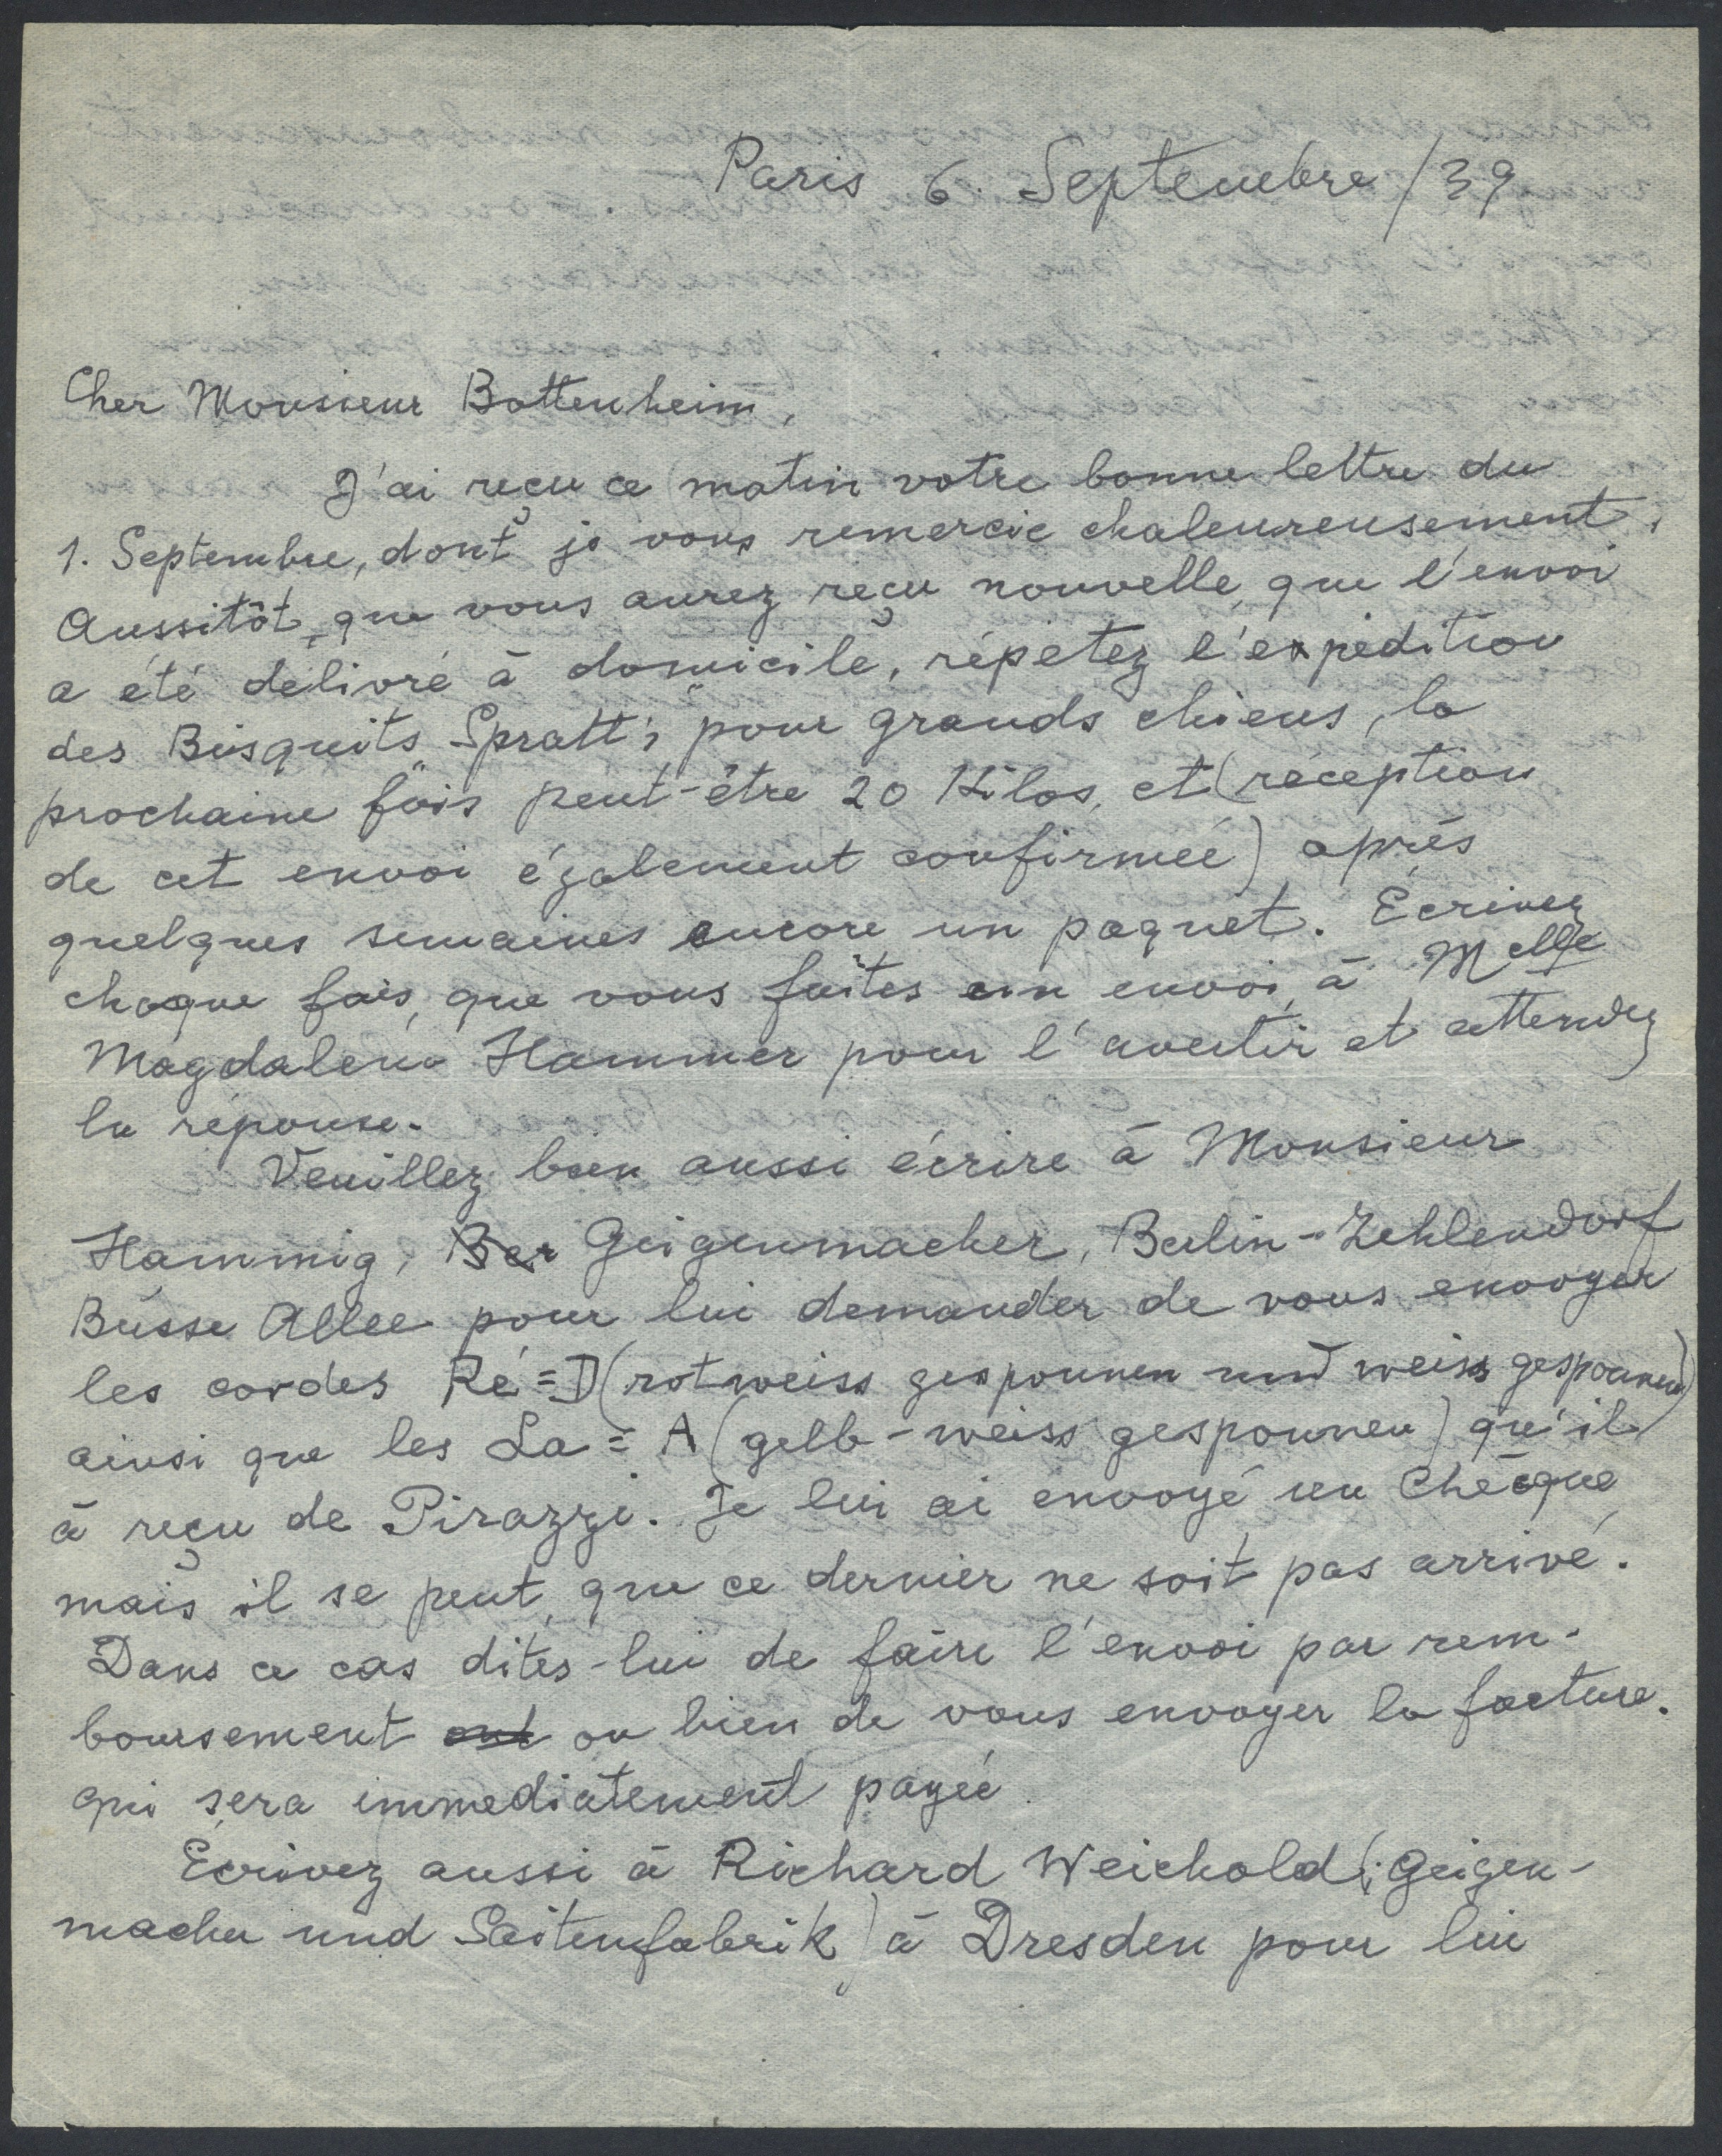 Paris 6. Septembre / 39
Cher Monsieur Bottenheim,
J'ai reçu ce matin votre bonne lettre du
1. Septembre, dont je vous remercie chaleureusement.
Aussitôt, que vous aurez reçu nouvelle, que l'envoi
a été délivré à domicile, répetez l'expédition
des Bisquits Spratt's pour grands chiens, la
prochaine fois peut-être 20 Kilos, et (réception
de cet envoi également confirmée) après
quelques semaines encore un paquet. Ecrivez
chaque fois, que vous faites un envoi, à Melle
Magdalena Hammer pour l'avertir et attendez
la réponse.
Veuillez bien aussi écrire à Monsieur
Hammig, Ber Geigenmacher, Berlin-Zehlendorf
Busse Allee pour lui demander de vous envoyer
les cordes Ré = D (rotweiss gesponnen und weiss gesponnen)
ainsi que les La = A (gelb-weiss gesponnen) qu'il
à reçu de Pirazzi. Je lui ai envoyé un Chèque,
mais il se peut, que ce dernier ne soit pas arrivé.
Dans ce cas dites-lui de faire l'envoi par rem-
boursement ou bien de vous envoyer la facture.
qui sera immediatement payée.
Ecrivez aussi à Richard Weichold (Geigen-
macher und Saitenfabrik) à Dresden pour lui